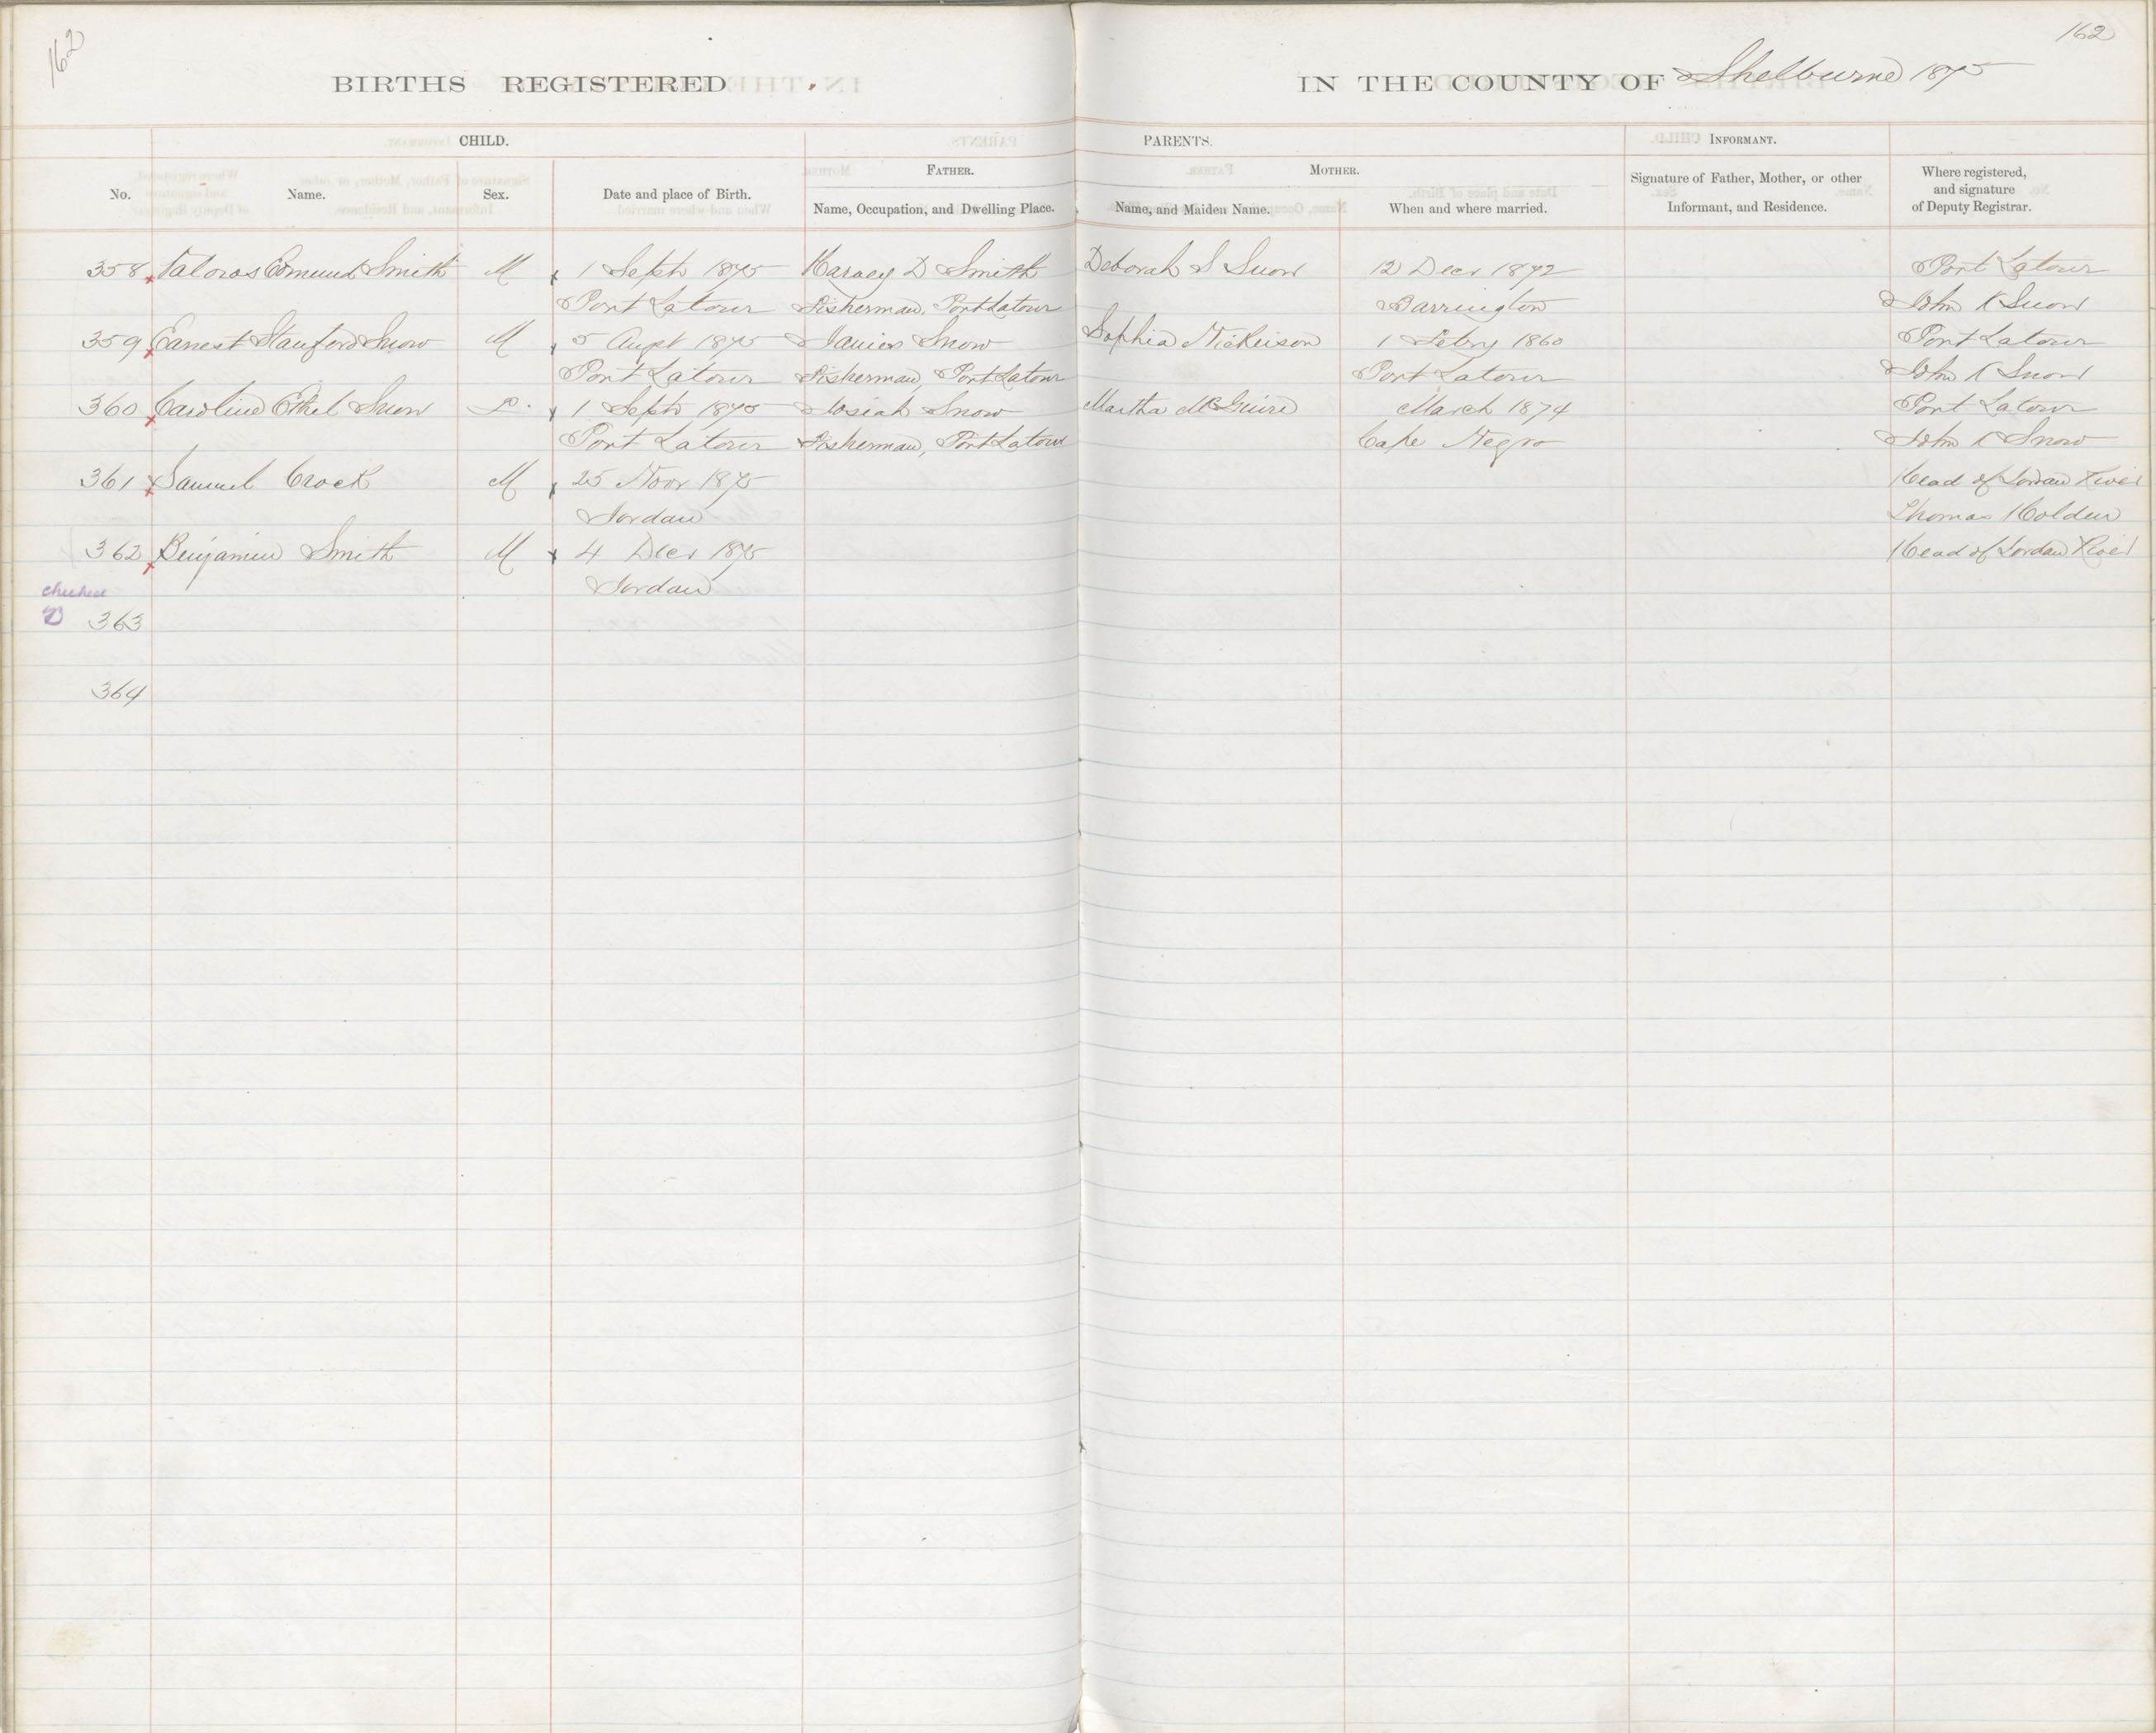 162
162
BIRTHS REGISTERED
IN THE COUNTY OF Shelburne 1875
CHILD.
PARENTS.
INFORMANT.
No.
Name.
Sex.
Date and place of Birth.
FATHER.
Name, Occupation, and Dwelling Place.
MOTHER.
Name, and Maiden Name.
When and where married.
Signature of Father, Mother, or other
Informant, and Residence.
Where registered,
and signature
of Deputy Registrar.
358 Edmund Smith M 1 Sept 1875 Harvey D Smith Deborah S Snow 12 Decr 1872 Port Latour
Port Latour Fisherman, Port Latour Barrington John K Snow
359 Earnest Stanford Snow M 5 Augt 1875 James Snow Sophia Nickerson 1 Febry 1860 Port Latour
Port Latour Fisherman, Port Latour Port Latour John K Snow
360 Caroline Ethel Snow F. 1 Sept 1875 Josiah Snow Martha McGuire March 1874 Port Latour
Port Latour Fisherman, Port Latour Cape Negro John K Snow
361 Samuel Crock M 25 Novr 1875 Head of Jordan River
Jordan Thomas Holden
362 Benjamin Smith M 4 Decr 1875 Head of Jordan River
Jordan
checked
363
364